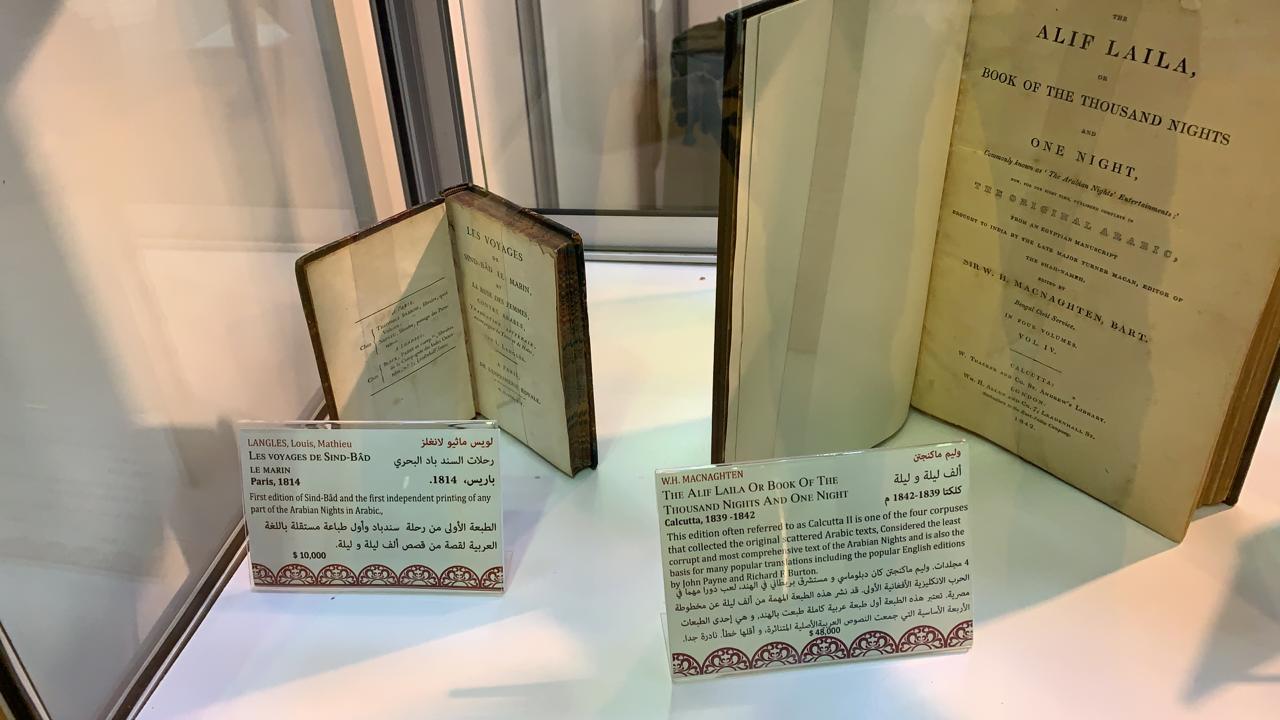 LES VOYAGES
DE
SIND-BÂD LE MARIN,
ET
LA RUSE DES FEMMES,
CONTES ARABES.
TRADUCTION LITTÉRAIRE,
A PARIS,
DE L'IMPRIMERIE ROYALE.
A PARIS,
THE
ALIF LAILA,
OR
BOOK OF THE THOUSAND NIGHTS
AND
ONE NIGHT,
Commonly known as 'The Arabian Nights' Entertainments;'
NOW, FOR THE FIRST TIME, PUBLISHED COMPLETE IN
THE ORIGINAL ARABIC,
FROM AN EGYPTIAN MANUSCRIPT
BROUGHT TO INDIA BY THE LATE MAJOR TURNER MACAN, EDITOR OF
THE SHAH-NAMEH.
EDITED BY
SIR W. H. MACNAGHTEN, BART.
Bengal Civil Service.
IN FOUR VOLUMES.
VOL. IV.
CALCUTTA:
W. THACKER AND CO. ST. ANDREW'S LIBRARY.
LONDON:
WM. H. ALLEN AND CO. 7, LEADENHALL ST.
Booksellers to the East-India Company.
1842.
LANGLES, Louis, Mathieu
لويس ماثيو لانغلز
LES VOYAGES DE SIND-BÂD
رحلات السند باد البحري
LE MARIN
Paris, 1814
باريس، 1814.
First edition of Sind-Bâd and the first independent printing of any
part of the Arabian Nights in Arabic.,
الطبعة الأولى من رحلة سندباد وأول طباعة مستقلة باللغة
العربية لقصة من قصص ألف ليلة و ليلة.
$ 10,000
W.H. MACNAGHTEN
وليم ماكنجتن
THE ALIF LAILA OR BOOK OF THE
ألف ليلة و ليلة
THOUSAND NIGHTS AND ONE NIGHT
كلكتا 1839-1842 م
Calcutta, 1839 -1842
This edition often referred to as Calcutta II is one of the four corpuses
that collected the original scattered Arabic texts, Considered the least
corrupt and most comprehensive text of the Arabian Nights and is also the
basis for many popular translations including the popular English editions
by John Payne and Richard F Burton.
4 مجلدات. وليم ماكنجتن كان دبلوماسي و مستشرق بريطاني في الهند، لعب دورا مهما في
الحرب الانكليزية الأفغانية الأولى. قد نشر هذه الطبعة المهمة من ألف ليلة عن مخطوطة
مصرية. تعتبر هذه الطبعة أول طبعة عربية كاملة طبعت بالهند, و هي إحدى الطبعات
الأربعة الأساسية التي جمعت النصوص العربيةالأصلية المتناثرة، و أقلها خطأ. نادرة جدا.
$ 48,000